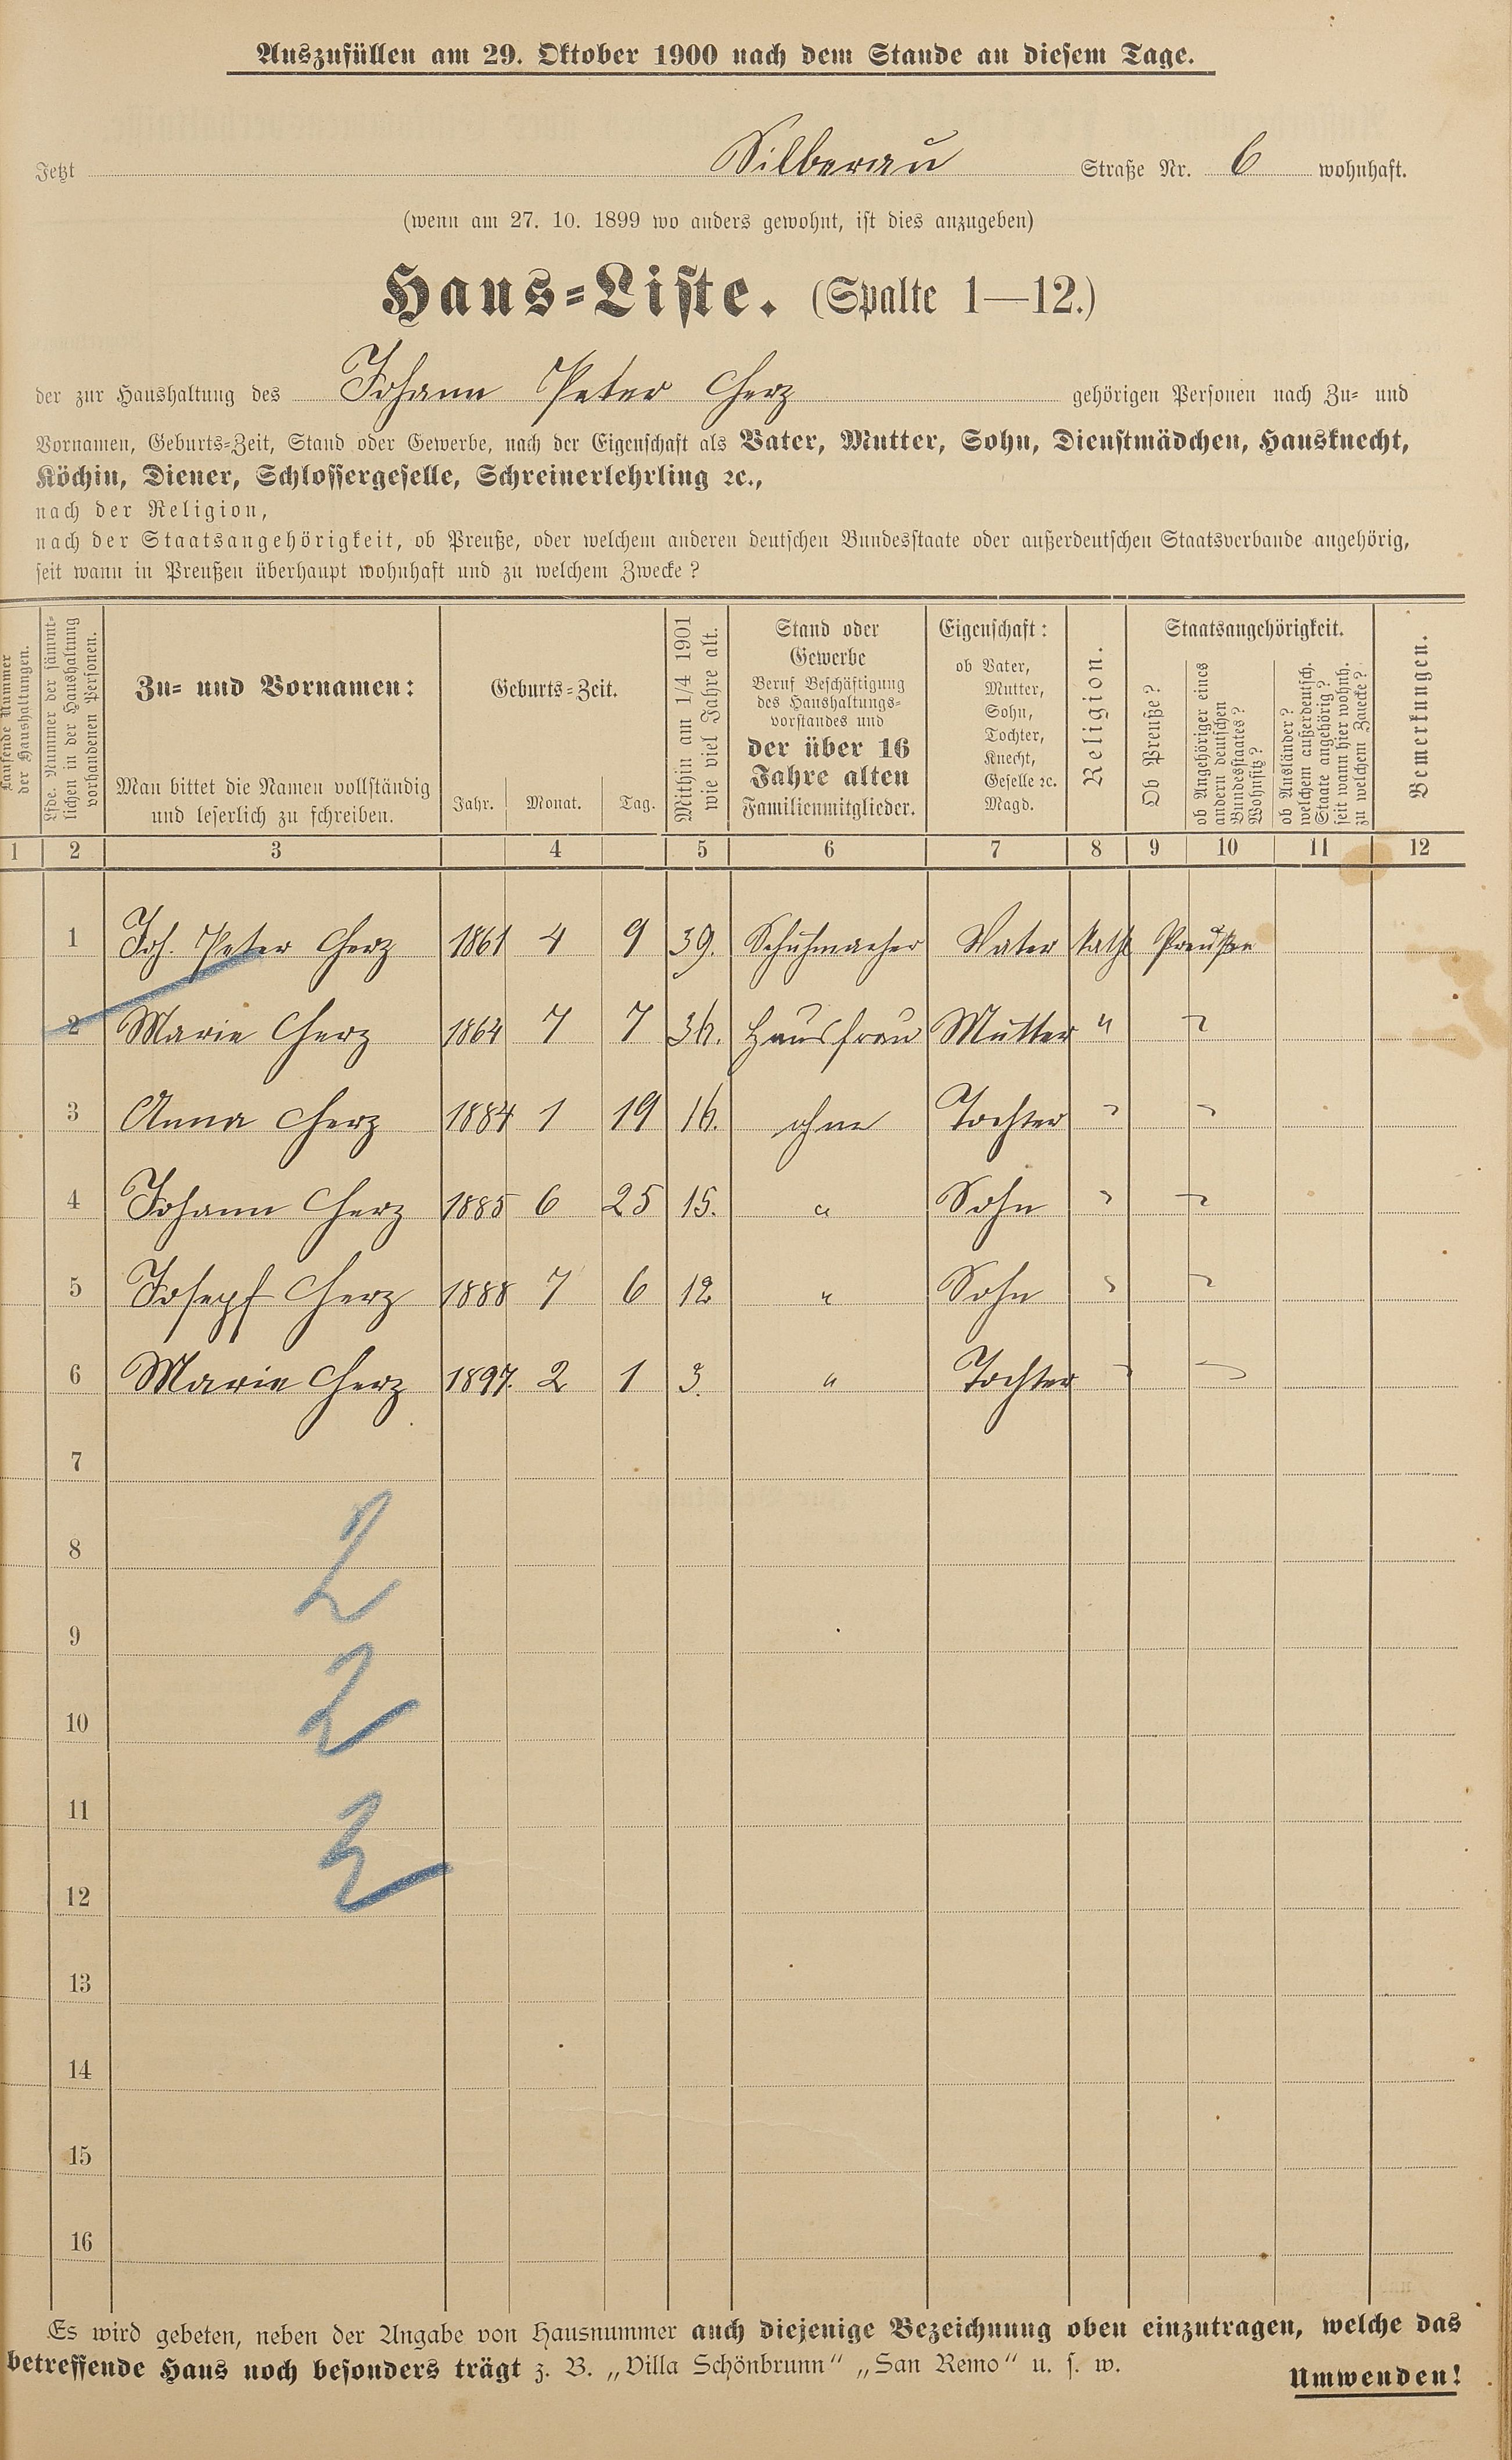 Auszufüllen am 29. Oktober 1900 nach dem Stande an diesem Tage.
Jetzt Silberau Straße Nr. 6 wohnhaft.
(wenn am 27. 10. 1899 wo anders gewohnt, ist dies anzugeben)
Haus-Liste. (Spalte 1—12.)
der zur Haushaltung des Johann Peter Cherz gehörigen Personen nach Zu- und
Vornamen, Geburts-Zeit, Stand oder Gewerbe, nach der Eigenschaft als Vater, Mutter, Sohn, Dienstmädchen, Hausknecht,
Köchin, Diener, Schlossergeselle, Schreinerlehrling ꝛc.,
nach der Religion,
nach der Staatsangehörigkeit, ob Preuße, oder welchem anderen deutschen Bundesstaate oder außerdeutschen Staatsverbande angehörig,
seit wann in Preußen überhaupt wohnhaft und zu welchem Zwecke?
Laufende Nummer
der Haushaltungen.
Lfde. Nummer der sämmt-
lichen in der Haushaltung
vorhandenen Personen.
Zu- und Vornamen:
Man bittet die Namen vollständig
und leserlich zu schreiben.
Geburts-Zeit.
Jahr. Monat. Tag.
Mithin am 1/4 1901
wie viel Jahre alt.
Stand oder
Gewerbe
Beruf Beschäftigung
des Haushaltungs-
vorstandes und
der über 16
Jahre alten
Familienmitglieder.
Eigenschaft:
ob Vater,
Mutter,
Sohn,
Tochter,
Knecht,
Geselle ꝛc.
Magd.
Religion.
Staatsangehörigkeit.
Ob Preuße?
ob Angehöriger eines
andern deutschen
Bundesstaates?
Wohnsitz?
ob Ausländer?
welchem außerdeutsch.
Staate angehörig?
seit wann hier wohnh.
zu welchem Zwecke?
Bemerkungen.
1 2 3 4 5 6 7 8 9 10 11 12
1 Joh. Peter Cherz 1861 4 9 39. Schuhmacher Vater kath Preußen
2 Marie Cherz 1864 7 7 36. Hausfrau Mutter "
3 Anna Cherz 1884 1 19 16. ohne Tochter
4 Johann Cherz 1885 6 25 15. " Sohn
5 Josepf Cherz 1888 7 6 12 " Sohn
6 Marie Cherz 1897. 2 1 3. " Tochter
7
8
9
10
11
12
13
14
15
16
Es wird gebeten, neben der Angabe von Hausnummer auch diejenige Bezeichnung oben einzutragen, welche das
betreffende Haus noch besonders trägt z. B. „Villa Schönbrunn" „San Remo" u. s. w.
Umwenden!